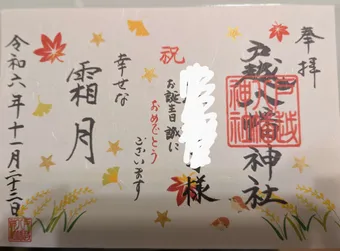 奉拝
戸越八幡神社
戸越八幡神社
祝
様
お誕生日誠に
おめでとう
ございます
幸せな
霜月
令和六年十一月二十三日